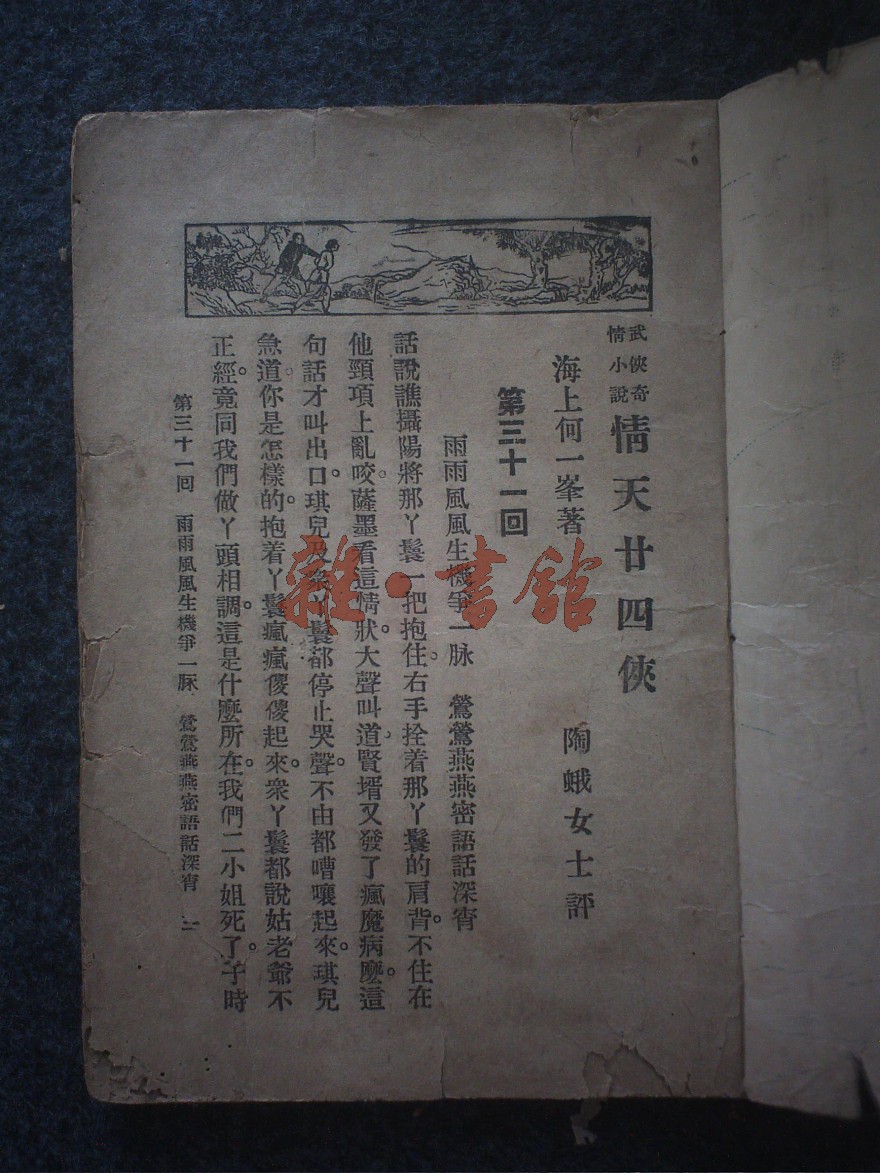 武俠奇情小說
情天廿四俠
海上何一峯著　陶蛾女士評
第三十一回
雨雨風風生機爭一脉　鶯鶯燕燕密語話深宵
話說譙攝陽將那丫鬟一把抱住。右手拴着那丫鬟的肩背。不住在
他頸項上亂咬。薩墨看這情狀。大聲叫道賢壻又發了瘋魔病麼。這
句話才叫出口。琪兒及衆丫鬟都停止哭聲。不由都嘈嚷起來。琪兒
急道。你是怎樣的。抱着丫鬟瘋瘋傻傻起來。衆丫鬟都說姑老爺不
正經。竟同我們做丫頭相調。這是什麼所在。我們二小姐死了。子時
第三十一回　雨雨風風生機爭一脉　鶯鶯燕燕密語話深宵　一
雜·書館